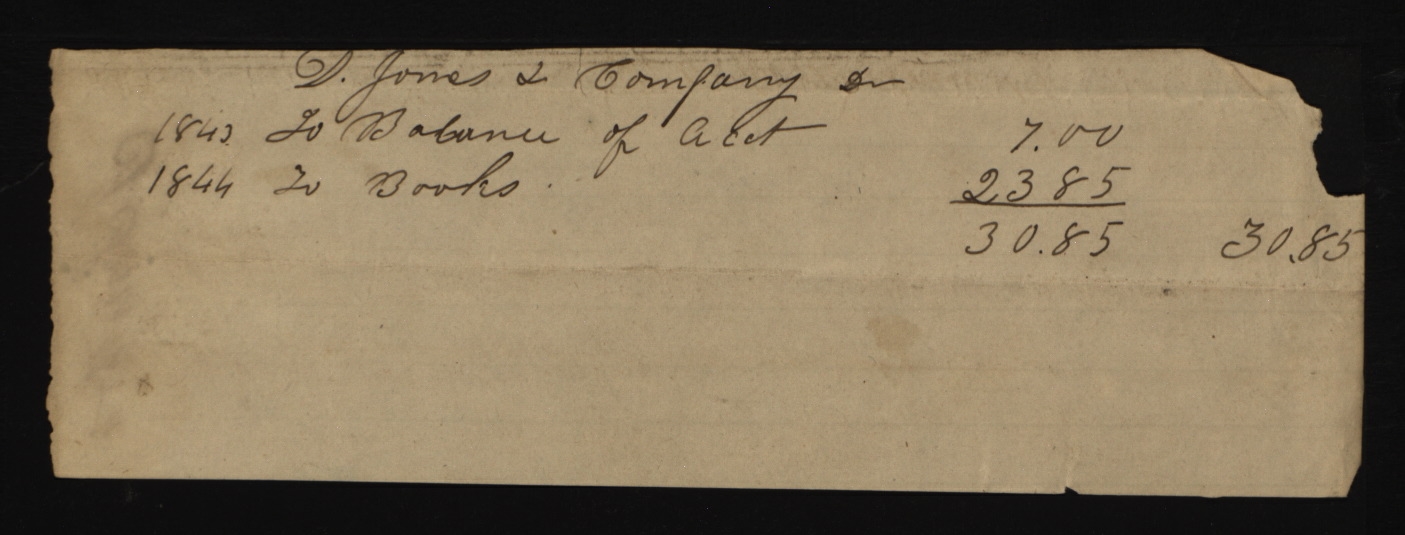 D. Jones & Company Dr
1843 To Balance of Acct 7.00
1844 To Books. 23 85
30.85 30.85